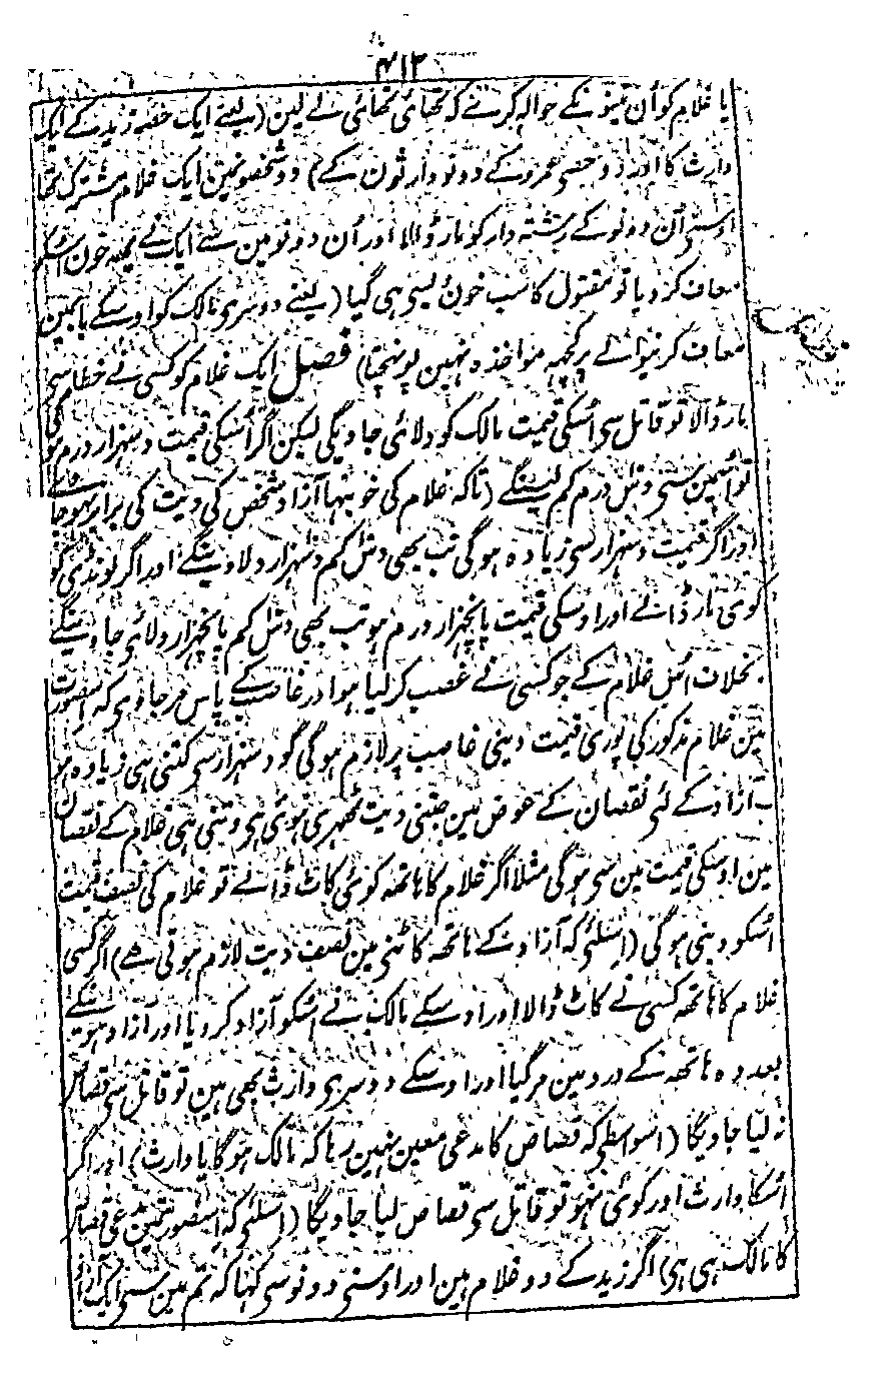 ۴۱۲
یا غلام کو ان تینو نکے حوالہ کر نے کہ تھائی تھائی لے لین (یعنے ایک حصہ زید کے ایک
وارث کا اور دو حصی عمرو کے دونو وارثون کے) دو شخصونمین ایک غلام مشترک تھا
اوسنی اُن دونو کے رشتہ دار کو مار ڈالا اور اُن دونو مین سے ایک نے یہہ خون
معاف کر دیا تو مقتول کا سب خون یہی ہی گیا (یعنے دوسری مالک کو اوسکے یا
معاف کرنیوالے پر کچہہ مواخذہ نہین پونہچتا) فصل ایک غلام کو کسی نے خطا سی
مار ڈالا تو قاتل سی اُسکی قیمت مالک کو دلائی جاویگی لیکن اگر اُسکی قیمت دسہزار درم ہو
تو اُسمین سی دس درم کم لینگے (تاکہ غلام کی خونبہا آزاد شخص کی دیت کی برابر نہو جائے
اور اگر قیمت دسہزار سی زیادہ ہو گی تب بھی دس کم دسہزار دلاوینگے اور اگر لونڈی کو
کوی مار ڈالے اور اوسکی قیمت پانچہزار درم ہو تب بھی دس کم پانچہزار دلائی جاوینگے
بخلاف اُس غلام کے جو کسی نے غصب کر لیا ہو اور غاصب کے پاس مر جاوی کہ اسصورت
مین غلام مذکور کی پوری قیمت دینی غاصب پر لازم ہو گی گو دسہزار سی کتنی ہی زیادہ ہو
آزاد کے لئے نقصان کے عوض مین جتنی دیت ٹھہری ہوی ہی وتنی ہی غلام کے نقصان
مین اوسکی قیمت مین سی ہو گی مثلا اگر غلام کا ہاتھہ کوئی کاٹ ڈالے تو غلام کی نصف قیمت
اُسکو دینی ہو گی (اسلئے کہ آزاد کے ہاتھہ کاٹنی مین نصف دیت لازم ہوتی ہے) اگر کسی
غلام کا ہاتھہ کسی نے کاٹ ڈالا اور اوسکے مالک نے اُسکو آزاد کر دیا اور آزاد ہونیکے
بعد وہ ہاتھہ کے درد مین مر گیا اور اوسکے دوسری وارث بھی ہین تو قاتل سی قصاص
نہ لیا جاویگا (اسواسطے کہ قصاص کا مدعی معین نہین رہا کہ مالک ہو گا یا وارث) اور اگر
اُسکا وارث اور کوئی نہو تو قاتل سی قصاص لیا جاویگا (اسلئے کہ اسصورتمین مدعی قصاص
کا مالک ہی ہی) اگر زید کے دو غلام ہین اور اوسنی دونو سی کہا کہ تم مین سی ایک آزاد